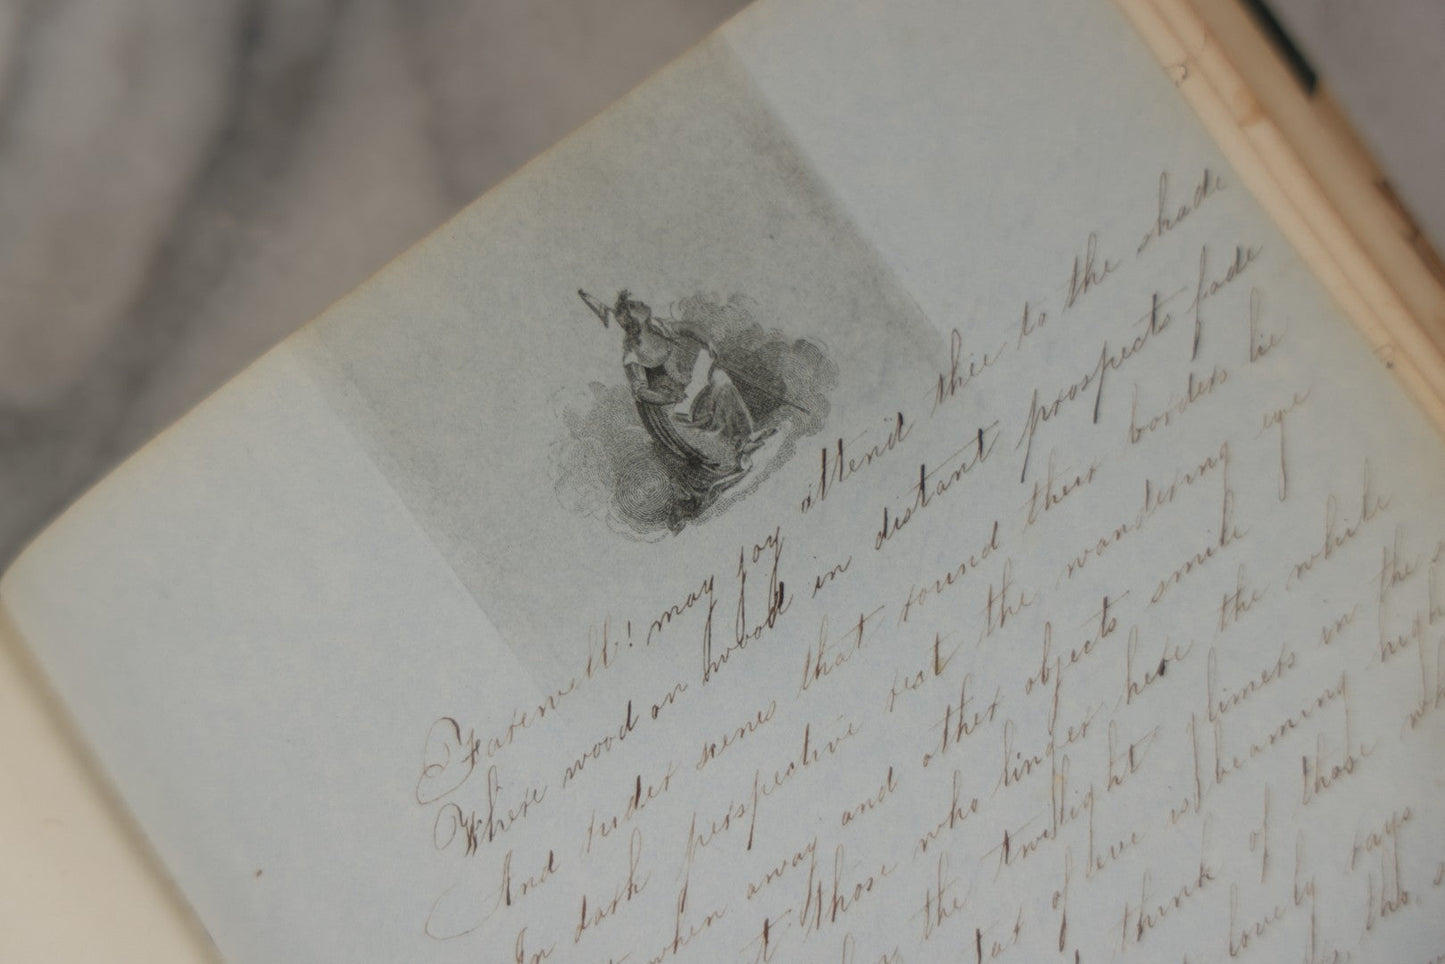 Farewell! may joy attend thee to the shade
Where wood on wood in distant prospects fade
And ruder scenes that round their borders lie
In dark perspective rest the wandering eye
when away and other objects smile
t those who linger here the while
the twilight glimers in the
of eve is beaming high
think of those
lovely rays
tho,